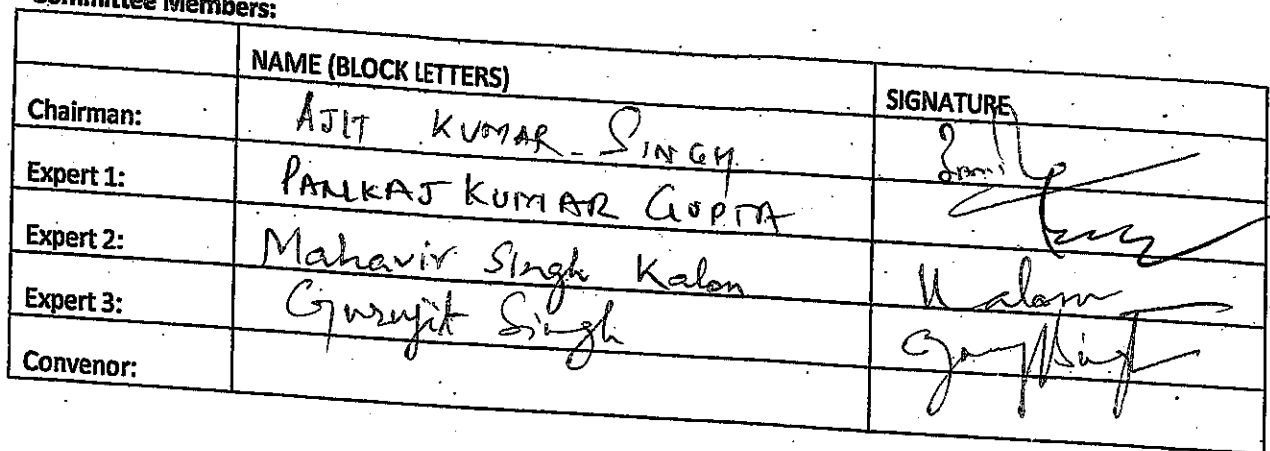 Committee Members:
NAME (BLOCK LETTERS) SIGNATURE
Chairman: AJIT KUMAR SINGH
Expert 1: PANKAJ KUMAR GUPTA
Expert 2: Mahavir Singh Kalon Kalon
Expert 3: Gurujit Singh
Convenor: